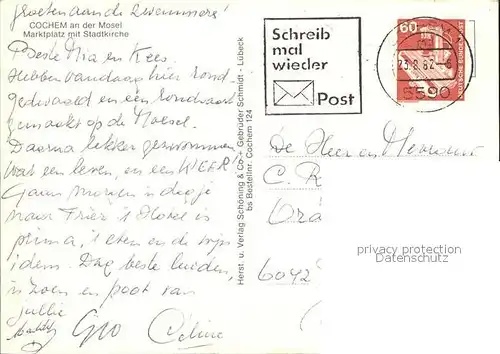 groeten aan de zwemmers!
COCHEM an der Mosel
Marktplatz mit Stadtkirche
Beste Mia en Kees
Hebben vandaag hier rond-
gedwaald en een rondvaart
gemaakt op de Moesel.
Daarna lekker gezwommen
Wat een leven, en een WEER!
Gaan morgen n dagje
naar Trier. 't Hotel is
prima, 't eten en de wijn
idem. Dag beste lieden,
'n zoen en poot van
jullie
Gro Celine
Herst. u. Verlag Schöning & Co - Gebrüder Schmidt - Lübeck
bs Bestellnr. Cochem 124
Schreib
mal
wieder
Post
60
DEUTSCHE BUNDESPOST
23.8.82-6
5590
De Heer en Mevrouw
C. R
6042
privacy protection
Datenschutz